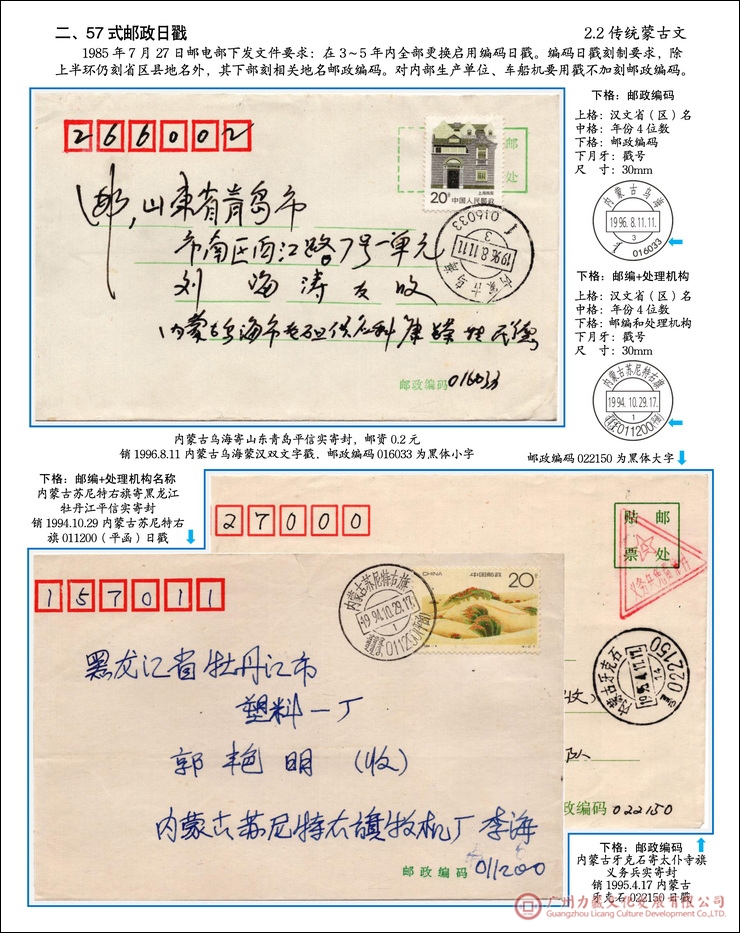 二、57 式邮政日戳
2.2 传统蒙古文
1985 年 7 月 27 日邮电部下发文件要求：在 3～5 年内全部更换启用编码日戳。编码日戳刻制要求，除
上半环仍刻省区县地名外，其下部刻相关地名邮政编码。对内部生产单位、车船机要用戳不加刻邮政编码。
266002
邮
处
上海民居
20分 中国人民邮政
016033
3
1996.8.11.11
内蒙古乌海
邮,山东省青岛市
市南区西江路7号一单元
刘海涛友收
内蒙古乌海市
邮政编码 016033
下格：邮政编码
上格：汉文省（区）名
中格：年份 4 位数
下格：邮政编码
下月牙：戳号
尺　寸：30mm
内蒙古乌海
1996.8.11.11.
3
016033
下格：邮编+处理机构
上格：汉文省（区）名
中格：年份 4 位数
下格：邮编和处理机构
下月牙：戳号
尺　寸：30mm
内蒙古苏尼特右旗
1994.10.29.17.
1
011200(平函)
内蒙古乌海寄山东青岛平信实寄封，邮资 0.2 元
销 1996.8.11 内蒙古乌海蒙汉双文字戳，邮政编码 016033 为黑体小字
邮政编码 022150 为黑体大字
下格：邮编+处理机构名称
内蒙古苏尼特右旗寄黑龙江
牡丹江平信实寄封
销 1994.10.29 内蒙古苏尼特右
旗 011200（平函）日戳
27000
贴 邮
票 处
义务兵免费信件
内蒙古牙克石
1995.4.17.17.
022150
收)
队
邮政编码 022150
157011
内蒙古苏尼特右旗
1994.10.29.17.
1
011200(平函)
CHINA 中国邮政 20分
黑龙江省牡丹江市
塑料一厂
郭艳明（收）
内蒙古苏尼特右旗牧机厂李海
邮政编码 011200
下格：邮政编码
内蒙古牙克石寄太仆寺旗
义务兵实寄封
销 1995.4.17 内蒙古
牙克石 022150 日戳
广州力藏文化发展有限公司
Guangzhou Licang Culture Development Co.,LTD.